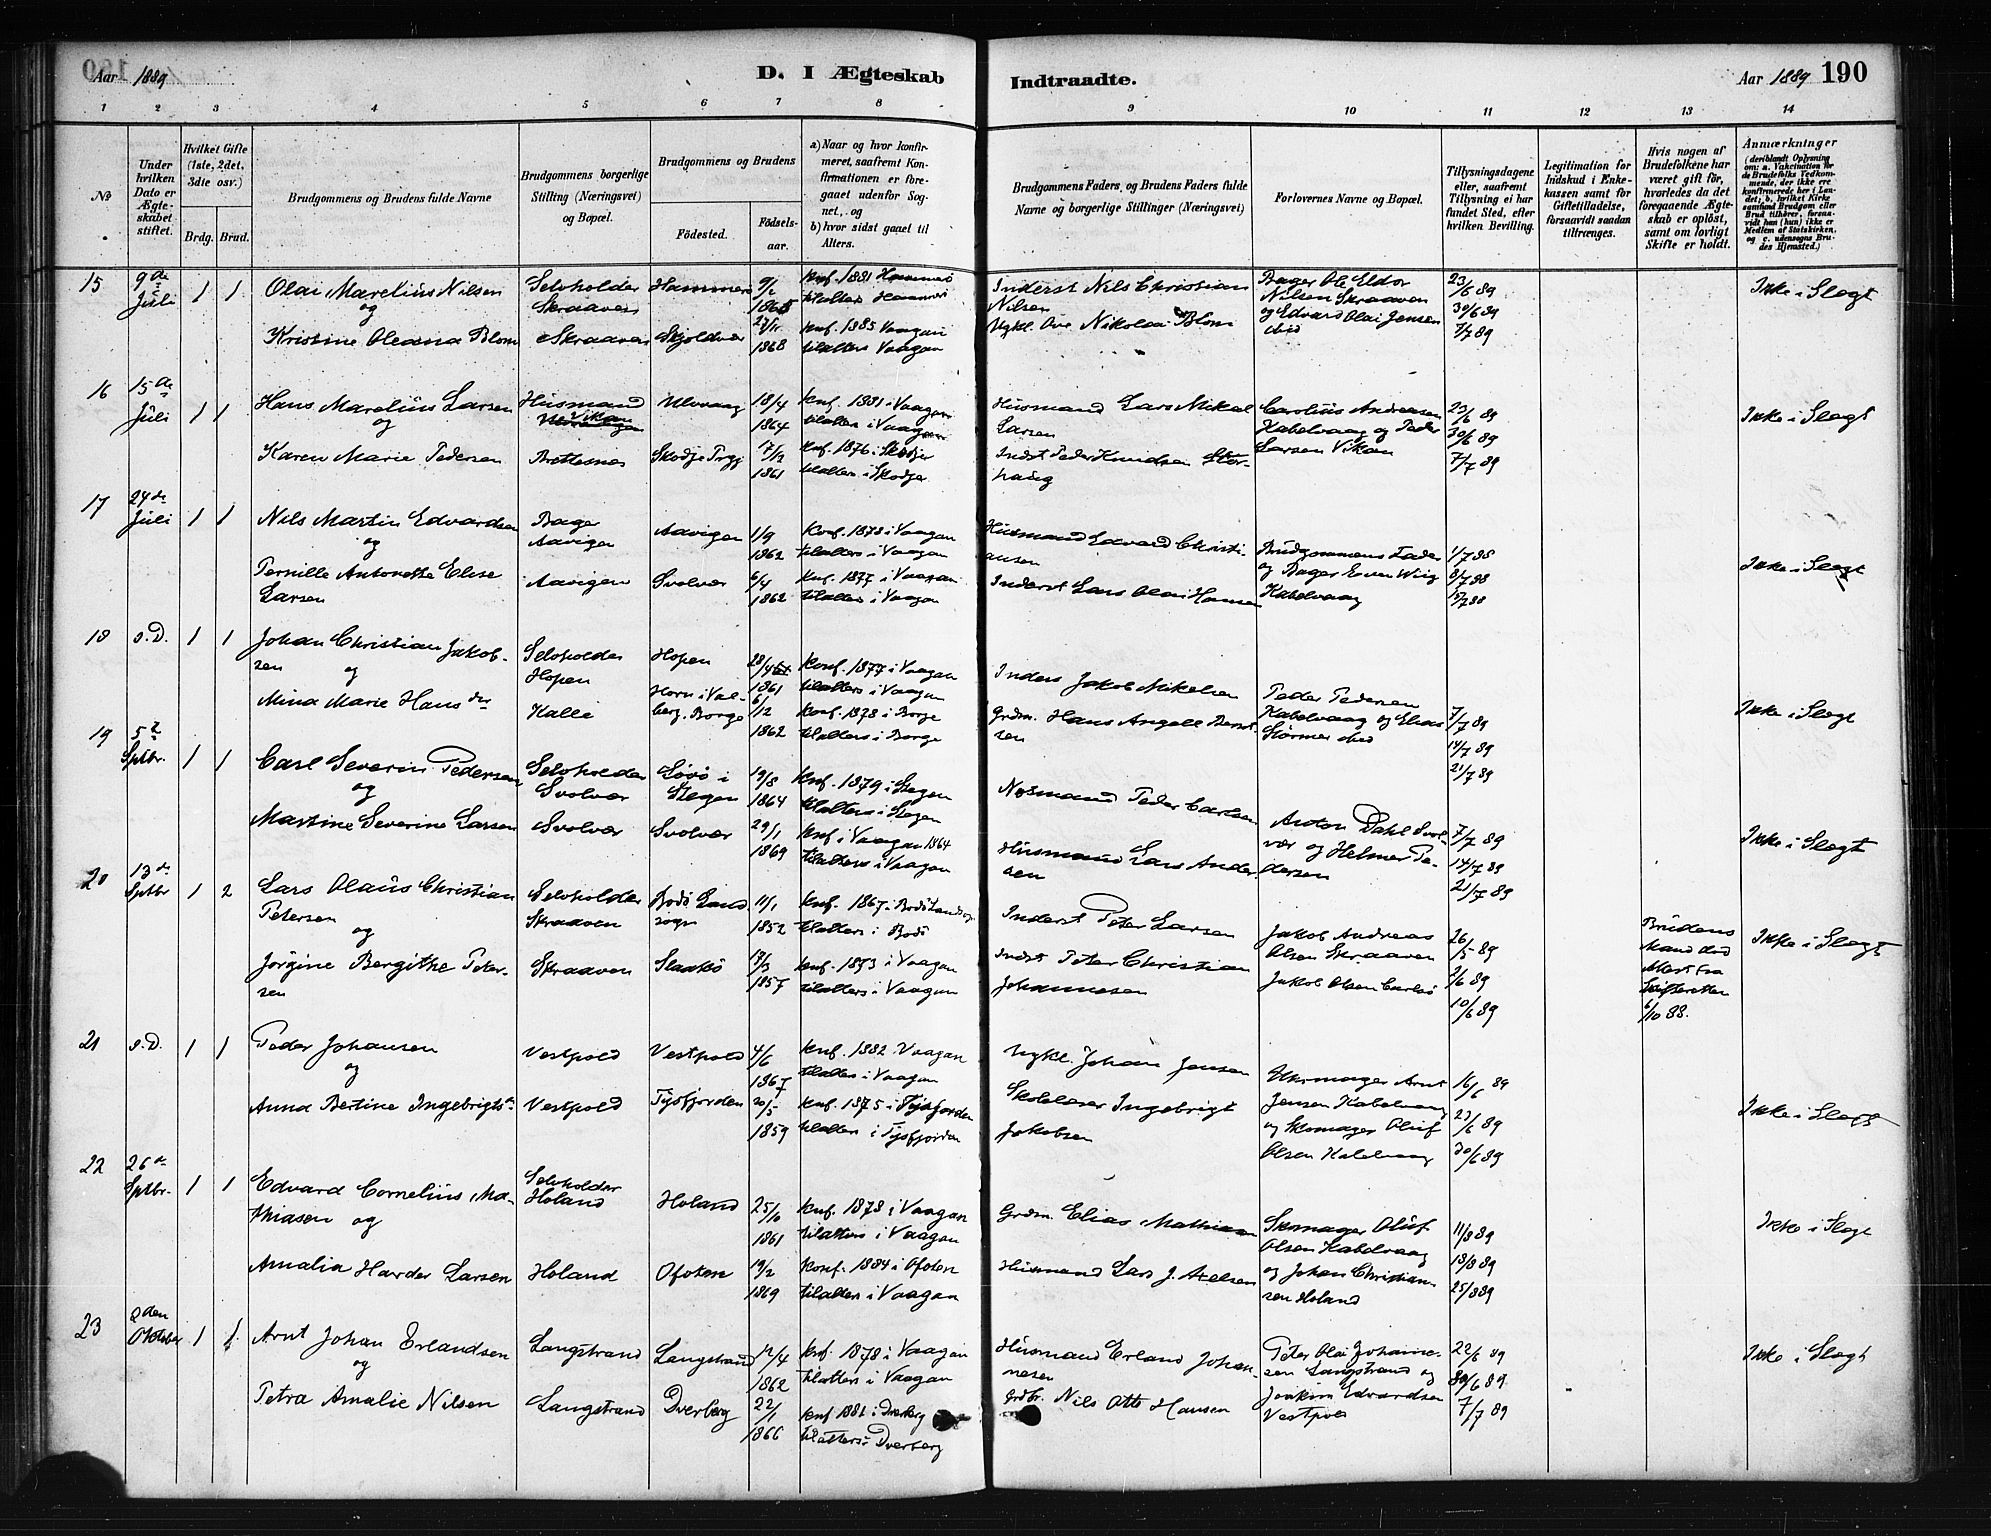 Aar 1889
D. I Ægteskab
Indtraadte.
Aar 1889 190
1 2 3 4 5 6 7 8 9 10 11 12 13 14
№
Under hvilken Dato er Ægteskabet stiftet.
Hvilket Gifte (1ste, 2det, 3die osv.)
Brdg. Brud.
Brudgommens og Brudens fulde Navne
Brudgommens borgerlige Stilling (Næringsvei) og Bopæl.
Brudgommens og Brudens
Födested.
Födselsaar.
a) Naar og hvor konfirmeret, saafremt Konfirmationen er foregaaet udenfor Sognet, og
b) hvor sidst gaaet til Alters.
Brudgommens Faders, og Brudens Faders fulde Navne og borgerlige Stillinger (Næringsvei)
Forlovernes Navne og Bopæl.
Tillysningsdagene eller, saafremt Tillysning ei har fundet Sted, efter hvilken Bevilling.
Legitimation for Indskud i Enkekassen samt for Giftetilladelse, forsaavidt saadan tiltrænges.
Hvis nogen af Brudefolkene har været gift för, hvorledes da det foregaaende Ægteskab er oplöst, samt om lovligt Skifte er holdt.
Anmærkninger
15 9de Juli 1 1
Olai Marelius Nilsen
og
Kristine Oleana Blom
Selvholder
Skraaven
Skraaven
Hammerö
Skjoldvær
9/2
27/11
1868
Konf. 1881 Hammerö
tilalters Hammerö
konf. 1885 Vaagan
tilalters Vaagan
Inderst Nils Christian
Nilsen
Ugkl. Ove Nikolai Blom
Bager Ole Eldor
Nilsen Skraaven
og Edvard Olai Jensen
ibid
23/6 89
30/6 89
7/7 89
Ikke i Slegt
16 15de Juli 1 1
Hans Marelius Larsen
og
Karen Marie Pedersen
Husmand
Vikan
Brettesnes
Ulvvaag
18/4
1864
17/12
1861
konf. 1881 i Vaagan
tilalters i Vaagan
konf. 1876 i Skodje
tilalters i Skodje
Husmand Lars Mikal
Larsen
Indst Peder Knudsen Storhaug
Carolius Andreasen
Kabelvaag og Peder
Larsen Vikan
23/6 89
30/6 89
7/7 89
Ikke i Slegt
17 24de Juli 1 1
Nils Martin Edvardsen
og
Pernille Antonette Elise
Larsen
Bager
Aavigen
Aavigen
Aavigen
Svolvær
1/9
1862
6/4
1862
Konf. 1878 i Vaagan
tilalters i Vaagan
konf. 1877 i Vaagan
tilalters i Vaagan
Husmand Edvard Christiansen
Inderst Lars Olai Hansen
Brudgommens Fader
og Bager Even Wiig
Kabelvaag
1/7 88
8/7 88
15/7 88
Ikke i Slegt
18 s.D. 1 1
Johan Christian Jakobsen
og
Mina Marie Hansdr
Selvholder
Hopen
Kalle
Hopen
Horn i Valberg. Borge
28/4
1861
6/12
1862
konf. 1877 i Vaagan
tilalters i Vaagan
konf. 1878 i Borge
tilalters i Borge
Inders Jakob Mikelsen
Grdm. Hans Angell Berntsen
Peder Pedersen
Kabelvaag og Elias
Störmer ibid
7/7 89
14/7 89
21/7 89
Ikke i Slegt
19 5te Sptbr. 1 1
Carl Severin Pedersen
og
Martine Severine Larsen
Selvholder
Svolvær
Svolvær
Lövö i
Stegen
Svolvær
19/8
1864
29/1
1869
konf. 1879 i Stegen
tilalters i Stegen
konf i Vaagan 1864
tilalters i Vaagan
Husmand Peder Carlsen
Husmand Lars Andersen
Anton Dahl Svolvær og Helmer Pedersen
7/7 89
14/7 89
21/7 89
Ikke i Slegt
20 13de Sptbr 1 2
Lars Olaus Christian
Petersen
og
Jörgine Bergithe Petersen
Selvholder
Skraaven
Skraaven
Bodö Landsogn
11/1
1852
1857
konf. 1867 i Bodö Landsogn
tilalters i Bodö
konf. 1873 i Vaagan
tilalters i Vaagan
Inderst Peter Larsen
Indst Peter Christian
Johannesen
Jakob Andreas
Olsen Skraaven
Jakob Olsen
26/5 89
2/6 89
10/6 89
Brudens
Mand död
Attest fra
Skifteretten
6/10 88.
Ikke i Slegt
21 s.D. 1 1
Peder Johansen
og
Anna Bertine Ingebrigtsdr
Vestpold
Vestpold
Vestpold
Tysfjorden
4/6
1867
20/5
1859
konf. 1882 Vaagan
tilalters i Vaagan
konf. 1875 i Tysfjorden
tilalters i Tysfjorden
Ugkl. Johan Jensen
Skolelærer Ingebrigt
Jakobsen
Uhrmager Arnt
Jensen Kabelvaag
og Skomager Oluf
Olsen Kabelvaag
16/6 89
23/6 89
30/6 89
Ikke i Slegt
22 26de Sptbr. 1 1
Edvard Cornelius Mathiasen og
Amalia Harder Larsen
Selvholder
Holand
Holand
Holand
Ofoten
25/10
1861
19/2
1869
konf. 1878 i Vaagan
tilalters i Vaagan
Konf. 1884 i Ofoten
tilalters i Vaagan
Grdm. Elias Mathiasen
Husmand Lars J. Axelsen
Skomager Oluf
Olsen Kabelvaag
og Johan Christiansen Holand
11/8 89
18/8 89
25/8 89
Ikke i Slegt
23 2den Oktober 1 1
Arnt Johan Erlandsen
og
Petra Amalie Nilsen
Langstrand
Langstrand
Langstrand
Dverberg
12/4
1862
22/1
1866
konf. 1878 i Vaagan
tilalters i Vaagan
konf 1881 i Dverberg
tilalters i Dverberg
Husmand Erland Johannesen
Grdbr. Nils Otto Hansen
Peter Olai Johannesen Langstrand og
Joakim Edvardsen
Vestpold
22/6 89
30/6 89
7/7 89
Ikke i Slegt